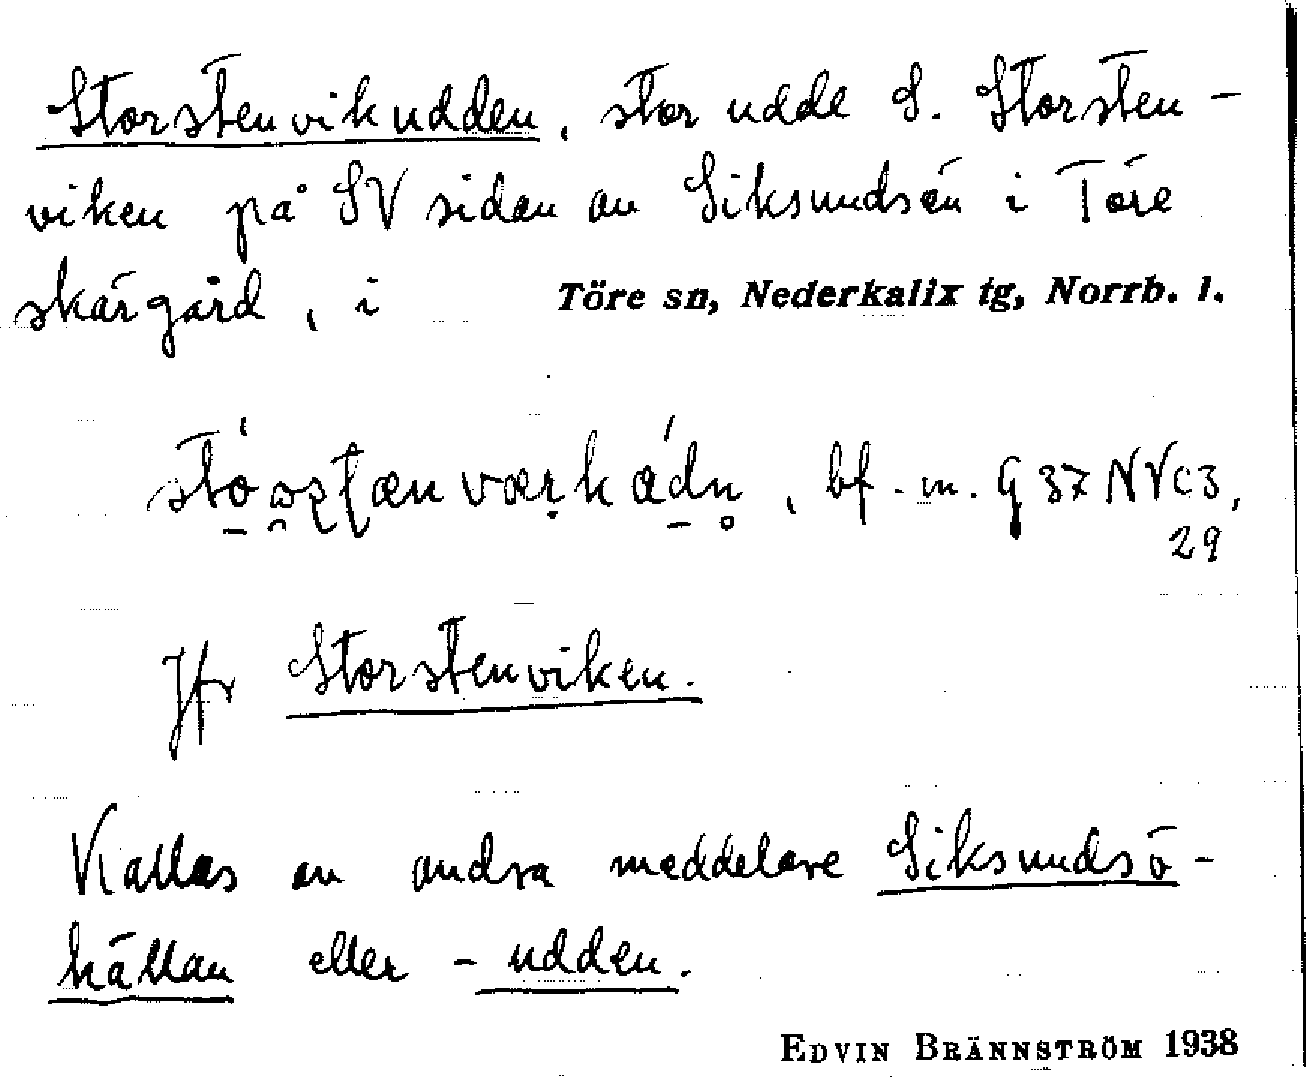 Storstenvikudden, stor udde S. Storsten-
viken på SV sidan av Siksundsön i Töre
skärgård, i Töre sn, Nederkalix tg, Norrb. l.
bf. m. G 37 NVc3,
29
Jfr Storstenviken.
Kallas av andra meddelare Siksundsö-
hällan eller -udden.
EDVIN BRÄNNSTRÖM 1938